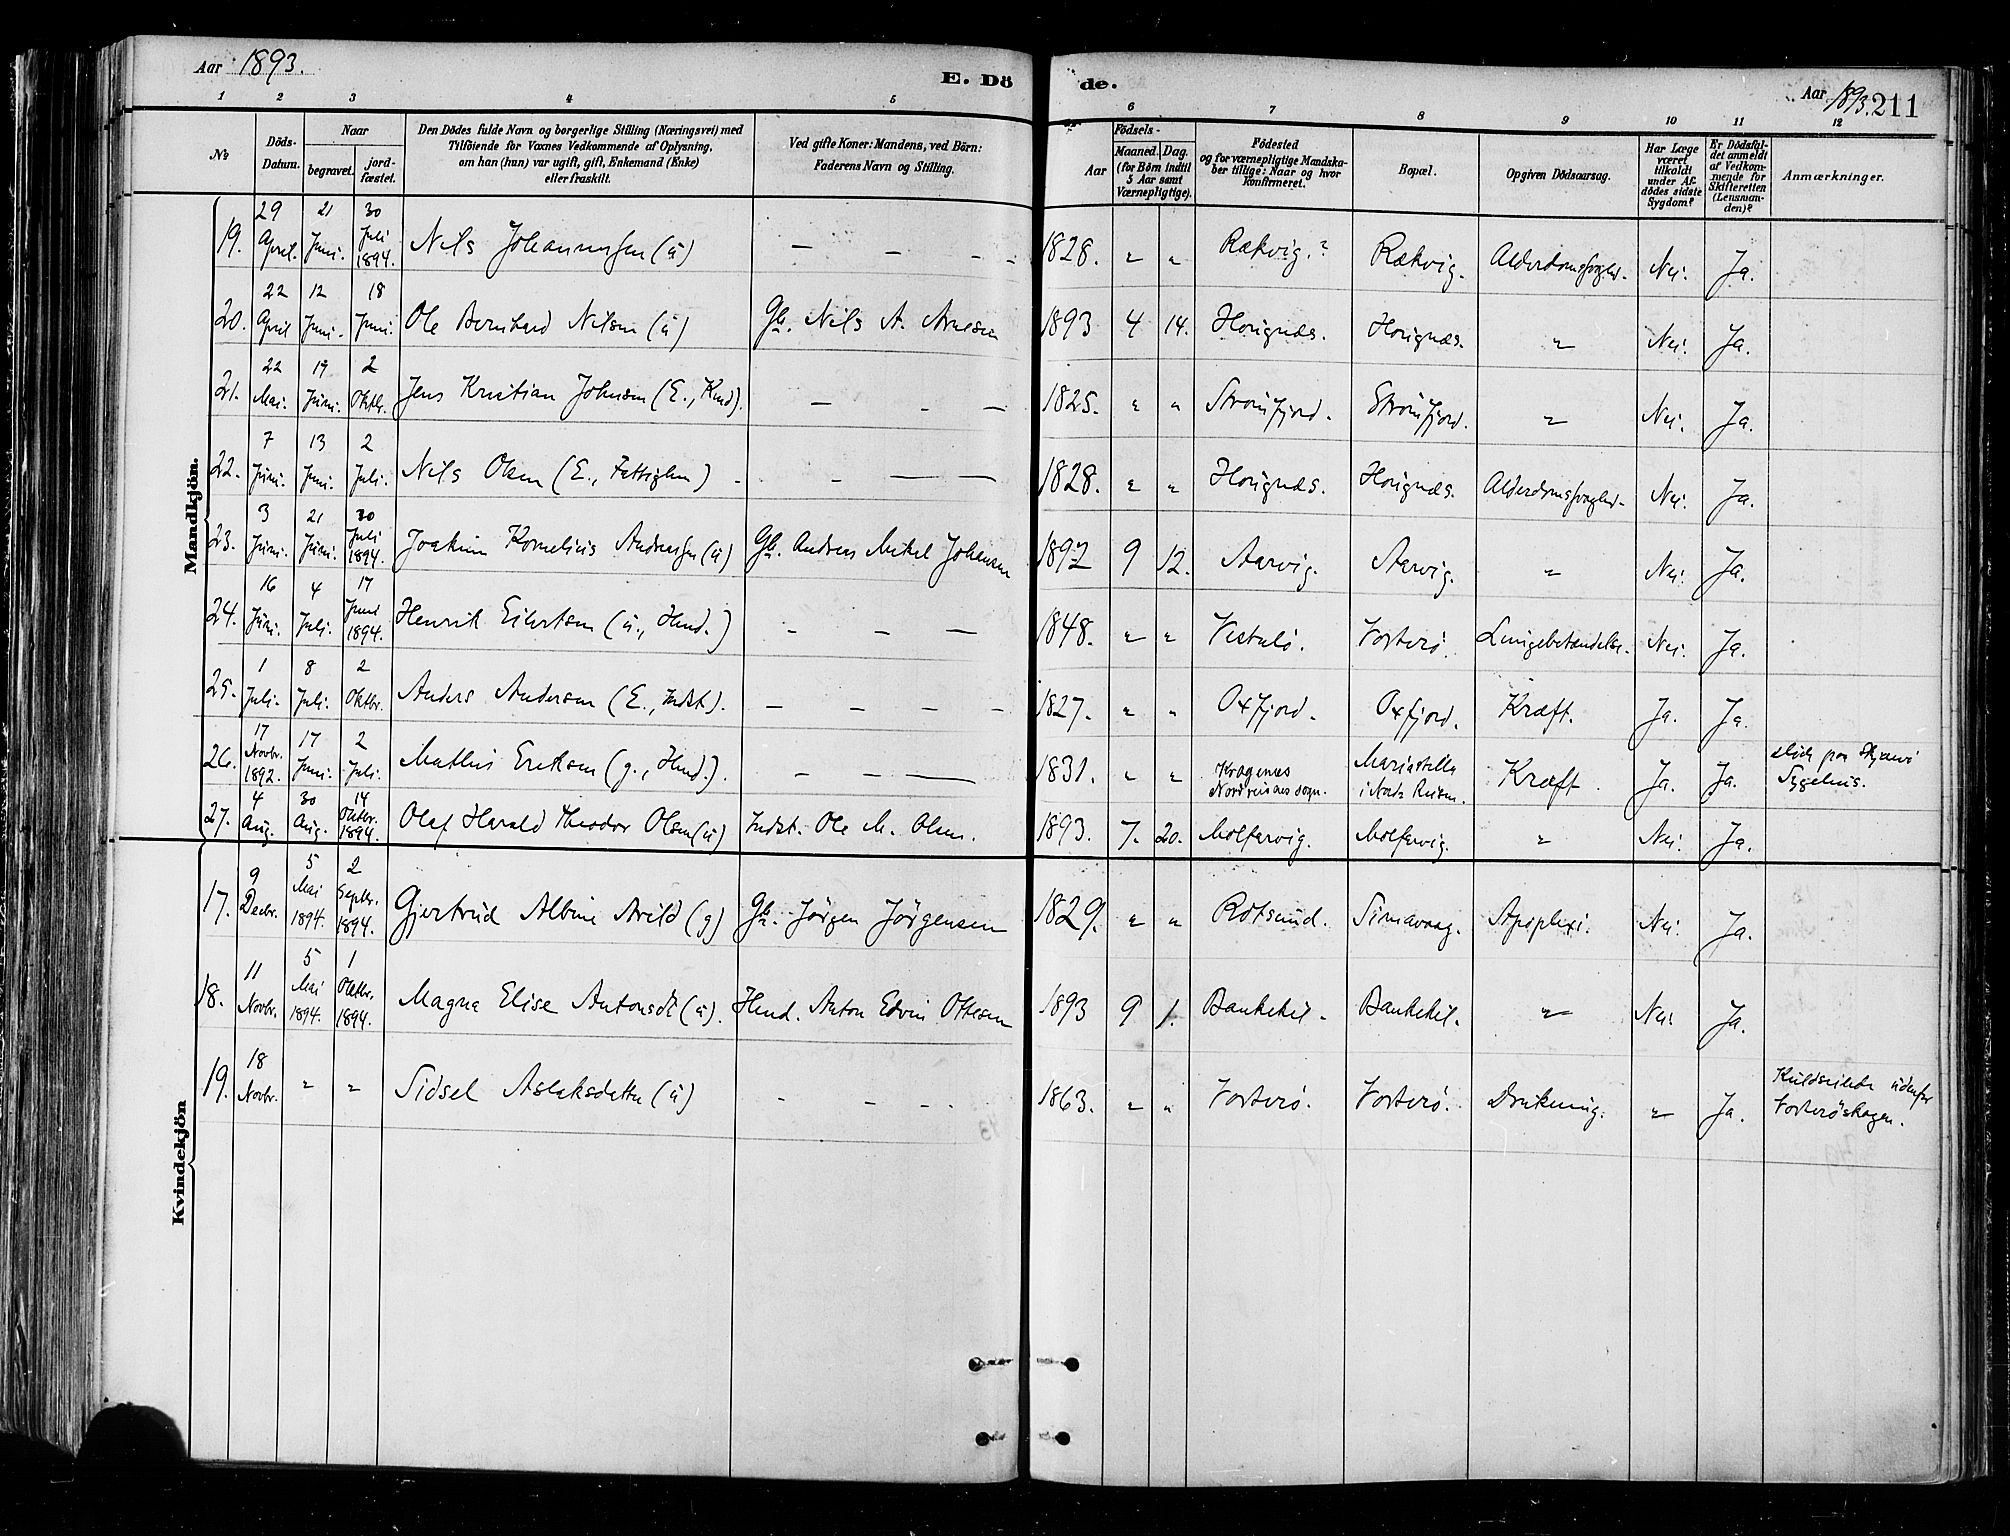 Aar 1893.
E. Döde.
Aar 1893. 211
1 2 3 4 5 6 7 8 9 10 11 12
No
Döds-Datum.
Naar
begravet.
jord-fæstet.
Den Dödes fulde Navn og borgerlige Stilling (Næringsvei) med
Tilföiende for Voxnes Vedkommende af Oplysning,
om han (hun) var ugift, gift, Enkemand (Enke)
eller fraskilt.
Ved gifte Koner: Mandens, ved Börn:
Faderens Navn og Stilling.
Födsels-
Aar
Maaned. Dag.
(for Börn indtil
5 Aar samt
Værnepligtige).
Födested
og for værnepligtige Mandska-
ber tillige: Naar og hvor
konfirmeret.
Bopæl.
Opgiven Dödsaarsag.
Har Læge
været
tilkaldt
under Af-
dödes sidste
Sygdom?
Er Dödsfal-
det anmeldt
af Vedkom-
mende for
Skifteretten
(Lensman-
den)?
Anmærkninger.
Mandkjön.
19. 29 April. 21 Juni. 30 Juli 1894. Nils Johannessen (u) — — - - 1828. " " Rækvig.? Rækvig. Alderdomssvaghed. Nei. Ja.
20. 22 April 12 Juni. 18 Juni. Ole Bernhard Nilsen (u) Gbr. Nils A. Arnesen 1893 4 14. Horignæs. Horignæs. " Nei. Ja.
21. 22 Mai. 19 Juni. 2 Oktbr. Jens Kristian Johnsen (E., Kaad). — - — 1825. " " Strømfjord. Strømfjord. " Nei. Ja.
22. 7 Juni. 13 Juni. 2 Juli. Nils Olsen (E., Fattiglem) - - — — 1828. " " Horignæs. Horignæs. Alderdomssvaghed. Nei. Ja.
23. 3 Juni. 21 Juni. 30 Juli 1894. Joakim Kornelius Andreassen (u) Gbr. Andreas Mikal Johansen 1892 9 12. Aarvig. Aarvig. " Nei. Ja.
24. 16 Juni. 4 Juli. 17 Juni 1894. Henrik Eilertsen (u., Hmd.) — — — 1848. " " Vorterø. Lungebetændelse. Nei. Ja.
25. 1 Juli. 8 Juli. 2 Oktbr. Anders Andersen (E., Indst). — — — — 1827. " " Oxfjord. Oxfjord. Kræft. Ja. Ja.
26. 17 Novbr. 1892. 17 Juni. 2 Juli. Mathis Eriksen (g., Hmd.). — — — 1831. " " Kragenes Nordreisens sogn. Mariastilla i Nordr Reisen. Kræft. Ja. Ja. døde paa Skjervø Sygehus.
27. 4 Aug. 30 Aug. 14 Oktbr. 1894. Olaf Harald Theodor Olsen (u) Indst. Ole M. Olsen. 1893. 7. 20. Molfarvig. Molfarvig. " Nei. Ja.
Kvindekjön
17. 9 Decbr. 5 Mai 1894. 2 Septbr. 1894. Gjertrud Albine Arild (g) Gbr. Jørgen Jørgensen 1829. " " Rotsund. Simavaag. Apoplexi. Nei. Ja.
18. 11 Novbr. 5 Mai 1894. 1 Oktbr. 1894. Magna Elise Antonsdt (u). Hmd. Anton Edvin Ottesen 1893 9 1. Bankekil. Bankekil. " Nei. Ja.
19. 18 Novbr. " " Sidsel Aslaksdatter (u) - - - - 1863. " " Vorterø. Vorterø. Drukning. " Ja. Kuldseilede udenfor Vorterøskagen.